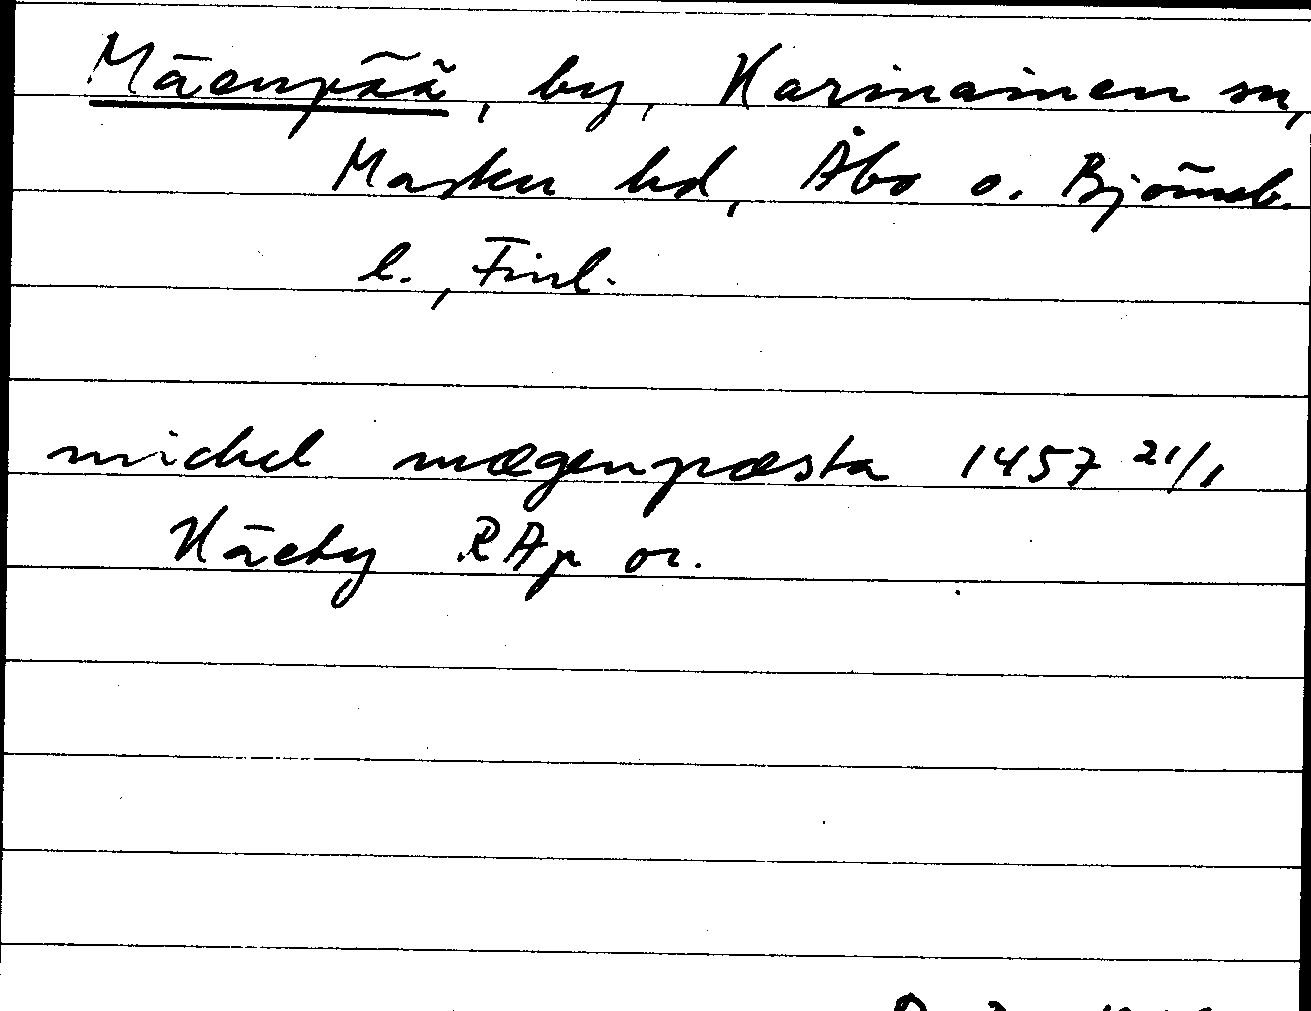 Mäenpää, by, Karinainen sn,
Masku hd, Åbo o. Björneb.
l., Finl.
michel mægenpæsta 1457 21/1
Häeby RAp or.